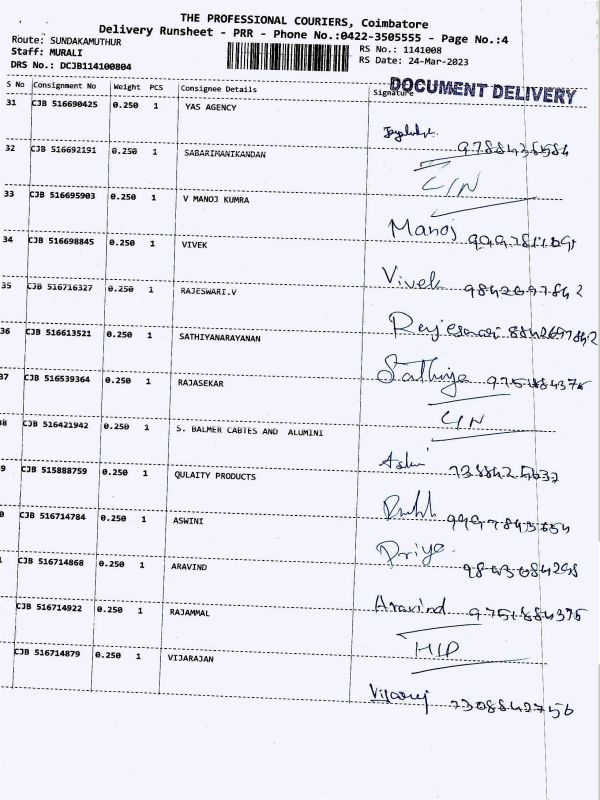 THE PROFESSIONAL COURIERS, Coimbatore
Delivery Runsheet - PRR - Phone No.:0422-3505555 - Page No.:4
Route: SUNDAKAMUTHUR
RS No.: 1141008
Staff: MURALI
RS Date: 24-Mar-2023
DRS No.: DCJB114100804
DOCUMENT DELIVERY
S No Consignment No Weight PCS Consignee Details Signature
31 CJB 516690425 0.250 1 YAS AGENCY
32 CJB 516692191 0.250 1 SABARIMANIKANDAN
C/N
33 CJB 516695903 0.250 1 V MANOJ KUMRA
Manoj
34 CJB 516698845 0.250 1 VIVEK
Vivek 9842697842
35 CJB 516716327 0.250 1 RAJESWARI.V
8842697842
36 CJB 516613521 0.250 1 SATHIYANARAYANAN
Sathiya
37 CJB 516539364 0.250 1 RAJASEKAR
C/N
38 CJB 516421942 0.250 1 S. BALMER CABTES AND ALUMINI
9 CJB 515888759 0.250 1 QULAITY PRODUCTS
0 CJB 516714784 0.250 1 ASWINI
Priya
CJB 516714868 0.250 1 ARAVIND
Aravind 9751884375
CJB 516714922 0.250 1 RAJAMMAL
CJB 516714879 0.250 1 VIJARAJAN